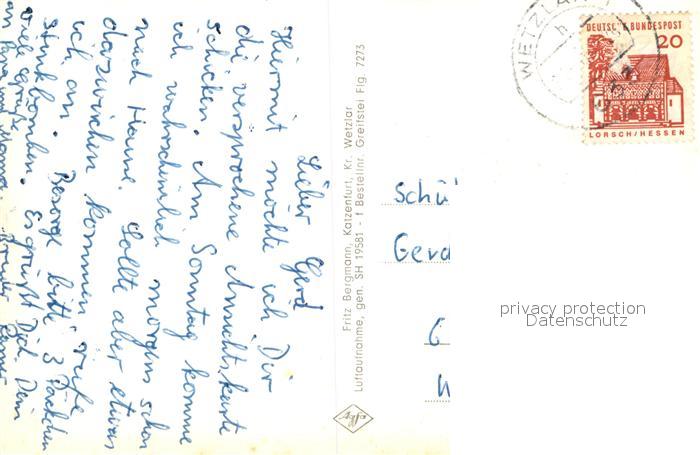 Lieber Gerd
Hiermit möchte ich Dir
die versprochene Ansichtskarte
schicken. Am Sonntag komme
ich wahrscheinlich morgens schon
nach Hause. Sollte aber etwas
dazwischen kommen rufe
ich an. Besorge bitte 3 Päckchen
Stinkbomben. Es grüßt Dich Dein
Bruder
Viele Grüße
an Papa und Mama.
Fritz Bergmann, Katzenfurt, Kr. Wetzlar
Luftaufnahme, gen. SH 19581 - f Bestellnr. Greifstei Flg. 7273
Agfa
WETZLAR
DEUTSCHE BUNDESPOST
20
LORSCH/HESSEN
Schü
Gerd
6
privacy protection
Datenschutz